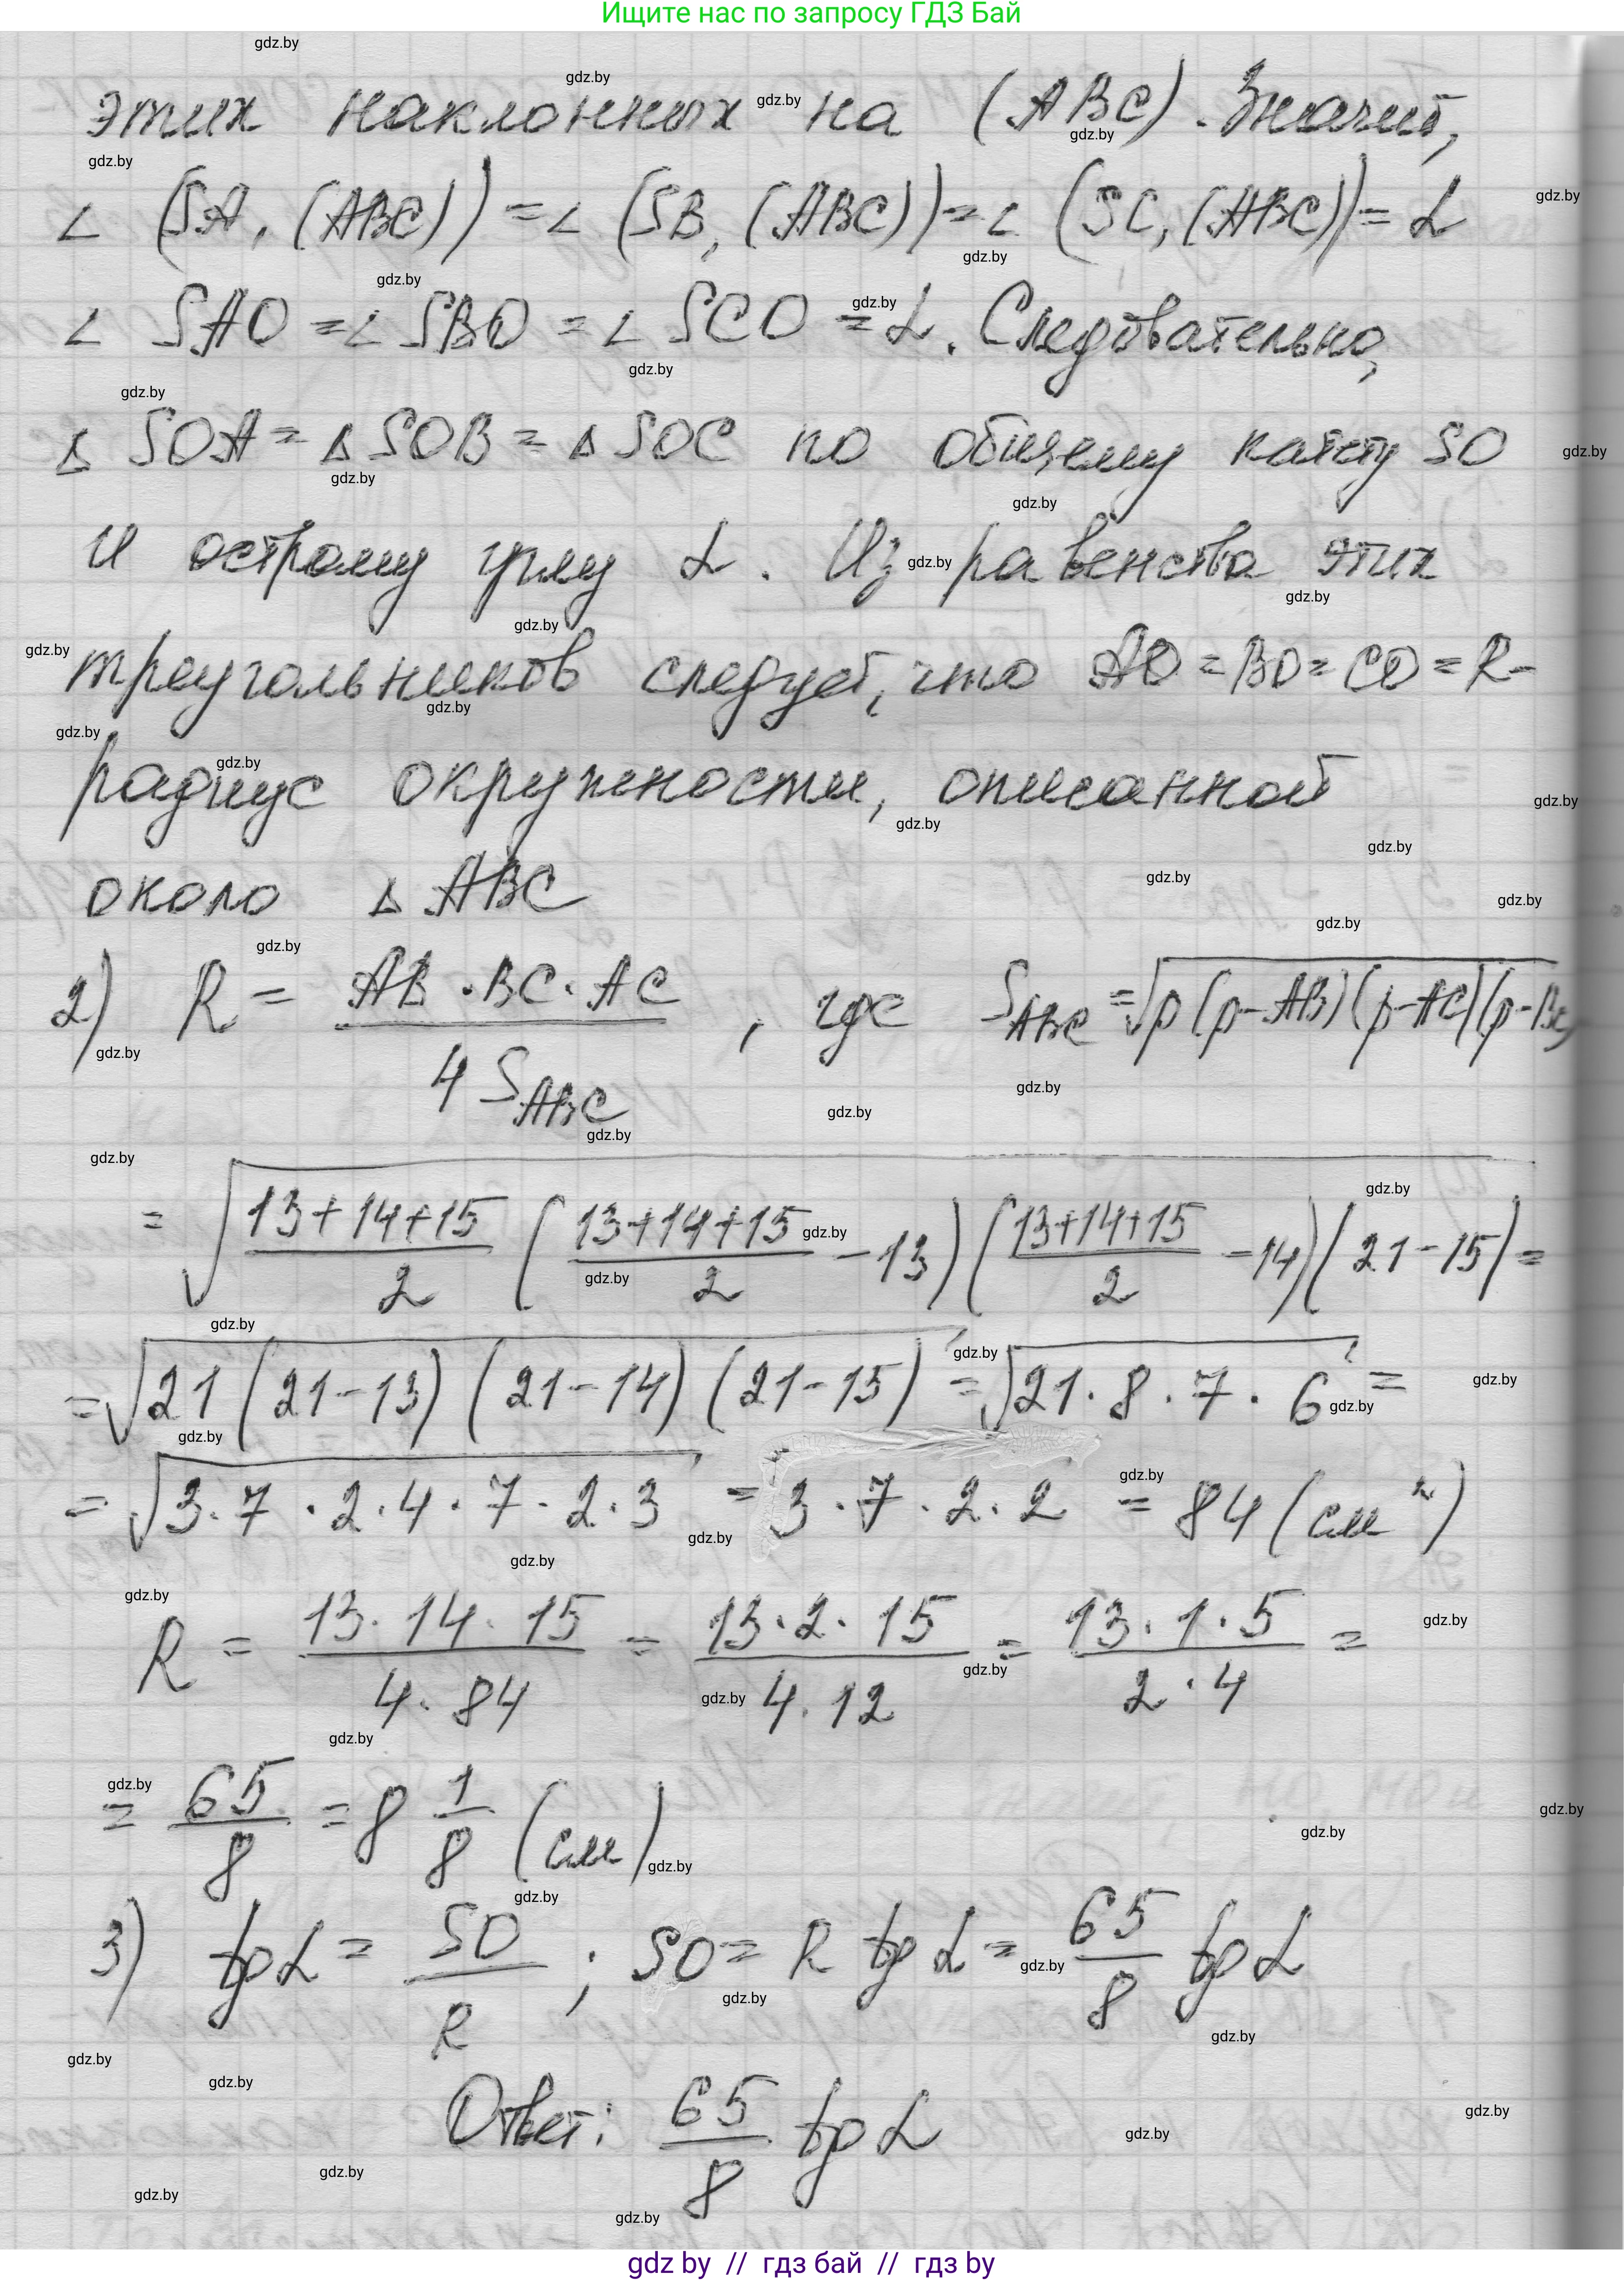 Ищите нас по запросу ГДЗ Бай
этих наклонных на (ABC). Значит,
∠ (SA, (ABC)) = ∠ (SB, (ABC)) = ∠ (SC, (ABC)) = α
∠ SAO = ∠ SBO = ∠ SCO = α. Следовательно,
Δ SOA = Δ SOB = Δ SOC по общему катету SO
и острому углу α. Из равенства этих
треугольников следует, что AO = BO = CO = R -
радиус окружности, описанной
около Δ ABC
2) R = AB · BC · AC / 4 S_ABC, где S_ABC = √(p (p-AB)(p-AC)(p-BC)
= √((13+14+15)/2 ((13+14+15)/2 - 13)((13+14+15)/2 - 14)(21-15)) =
= √(21 (21-13) (21-14) (21-15)) = √(21 · 8 · 7 · 6) =
= √(3 · 7 · 2 · 4 · 7 · 2 · 3) = 3 · 7 · 2 · 2 = 84 (см²)
R = 13 · 14 · 15 / 4 · 84 = 13 · 2 · 15 / 4 · 12 = 13 · 1 · 5 / 2 · 4 =
= 65/8 = 8 1/8 (см)
3) tg α = SO/R ; SO = R tg α = 65/8 tg α
Ответ: 65/8 tg α
gdz by // гдз бай // гдз by